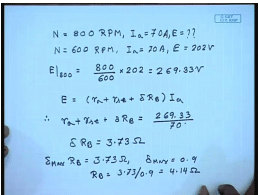 N = 800 RPM, Ia = 70A, E = ??
N = 600 RPM, Ia = 70A, E = 202V
E|800 = 800/600 × 202 = 269.33V
E = (ra + rse + δ RB) Ia
∴ ra + rse + δRB = 269.33/70
δ RB = 3.73 Ω
δmax RB = 3.73 Ω, δmax = 0.9
RB = 3.73/0.9 = 4.14 Ω